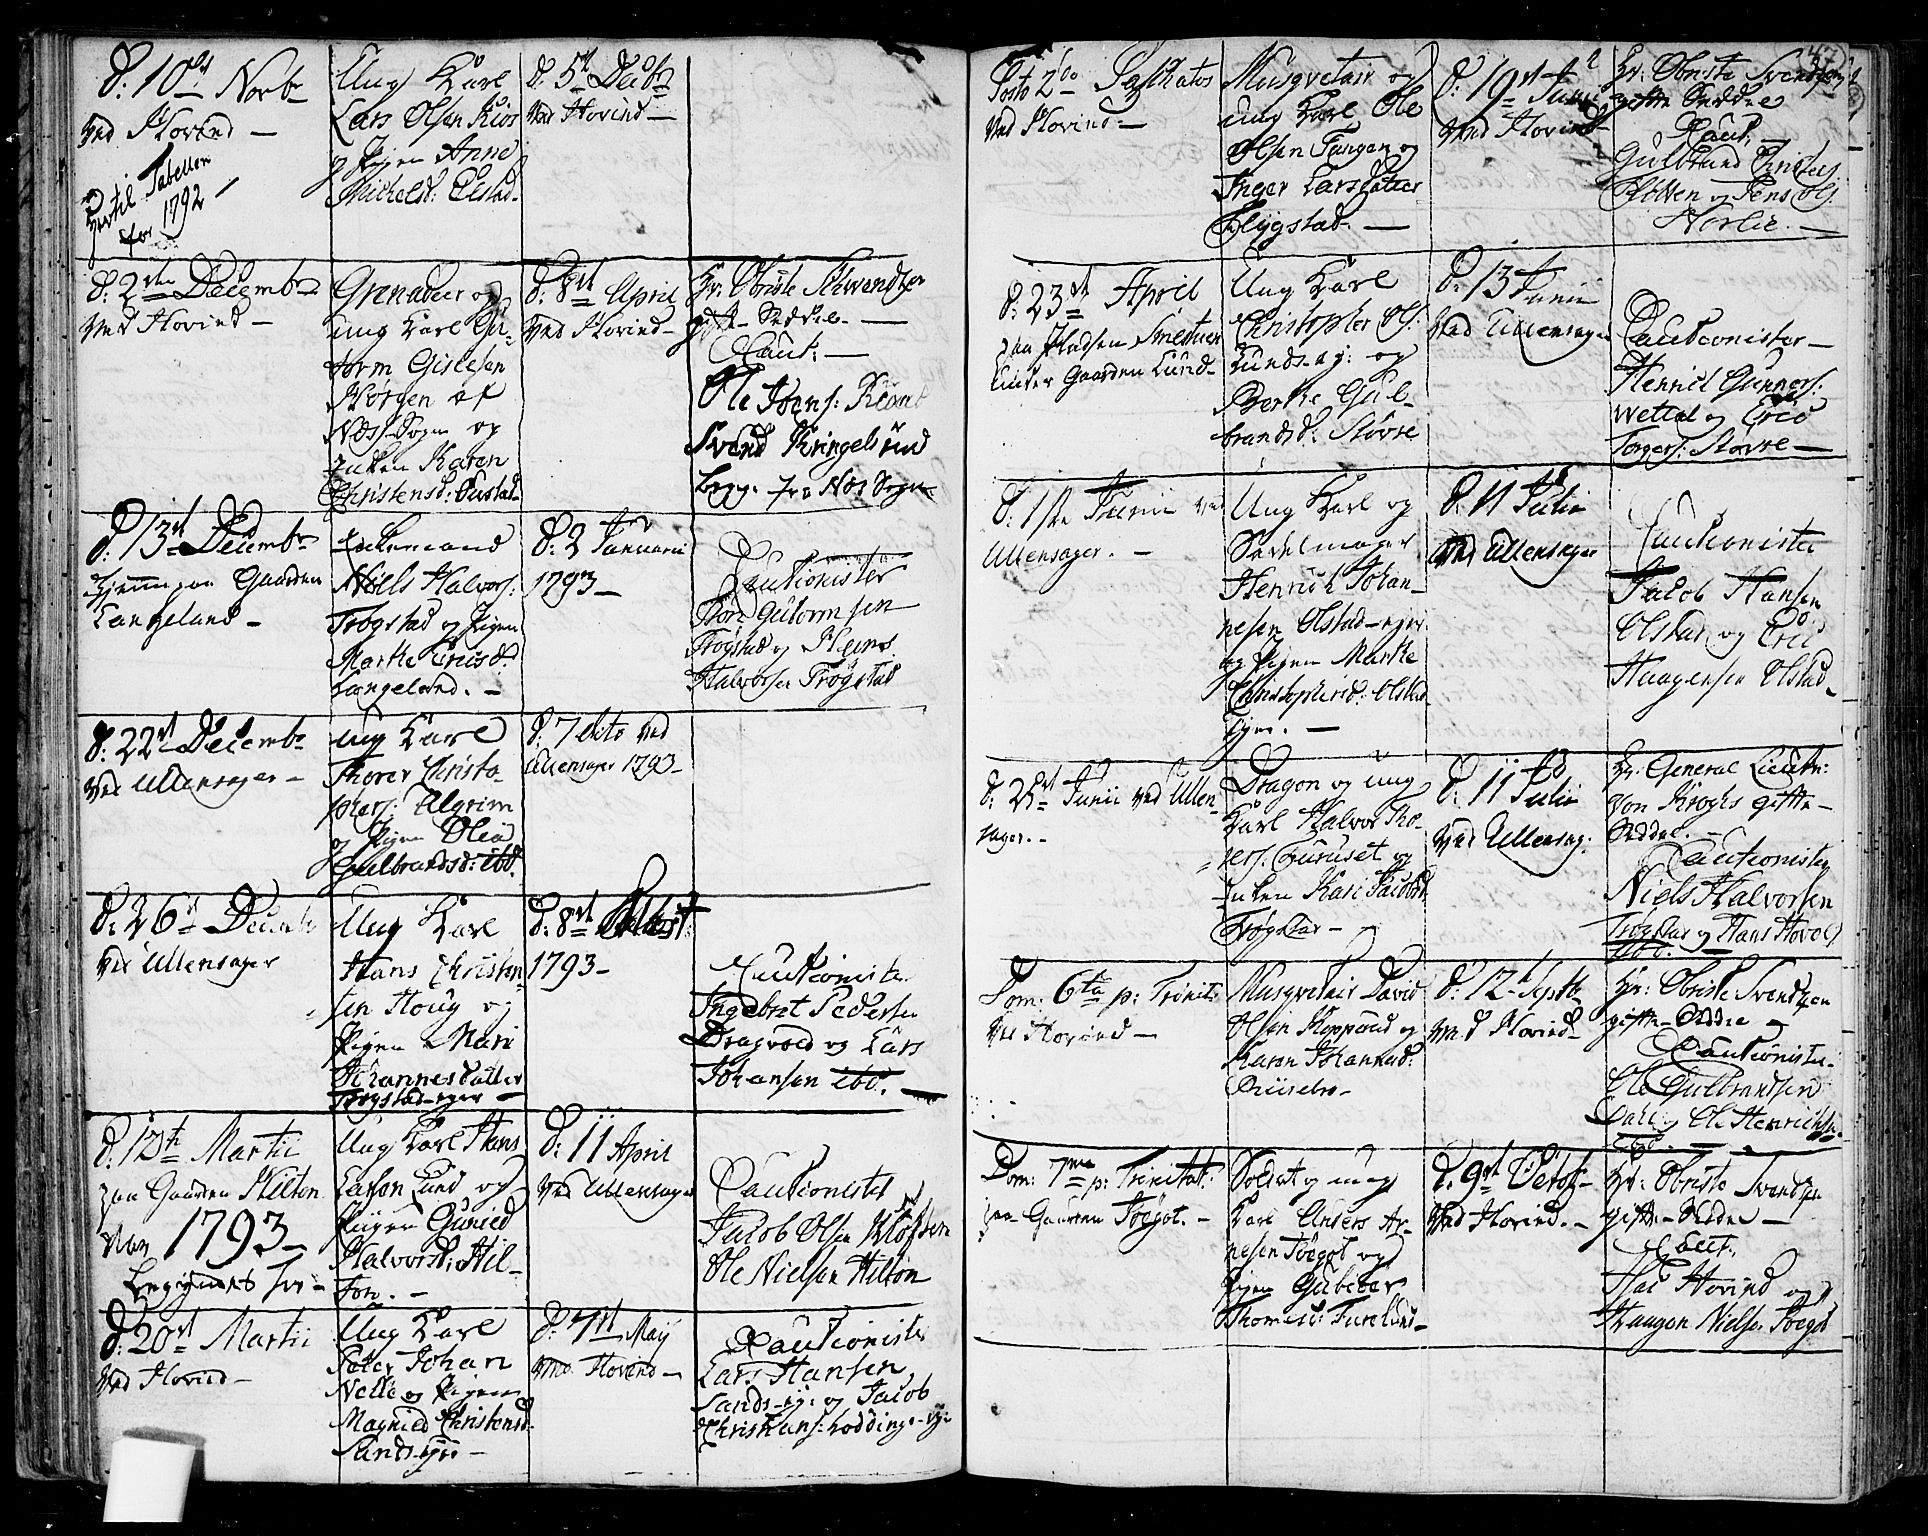 d: 10de Novb:
ved Hovind —
hertil Tabellen
for 1792 —
Ung Karl
Lars Olsen Kios
og Pigen Anne
Michelsd: Elstad.
d: 5te Decb:
ved Hovind —
d: 2den Decembr:
ved Hovind —
Grenadeer og
ung Karl Gu-
torm Gislesen
Hørgen af
Næss-Sogn og
Enken Karen
Christensd: Gustad
d: 8de April
ved Hovind —
Hr: Obriste Schwendsen
gifte-Seddel. —
Caut: —
Ole Joens:
Svend Kringelsrud
begge fra Næs Sogn.
d: 13de Decembr:
hjemme paa Gaarden
Langeland —
Enkemand
Niels Halvors:
Trøgstad og Pigen
Marthe Ericsd:
Langeland. —
d: 2 Januarii
1793 —
Cautionister
Gutormsen
Trøgstad og
Halvorsen Trøgstad
d: 22de Decembr:
ved Ullensager —
ung Karl
Thorer Christo-
phers: Algrim
og Pigen Oleà
Gulbrandsd: ibd.
d: 7 dito ved
Ullensager 1793 —
d: 26de Decembr:
ved Ullensager
Ung Karl
Hans Christen-
sen Houg og
Pigen Mari
Johannesdatter
Trøgstad-eger —
d: 8de
1793 —
Cautionister
Ingebret Pedersen
Dragvold og Lars
Johansen ibd. —
d: 12te Martii
paa Gaarden Hilton
1793 —
Ung Karl Hans
Larsen Lund og
Pigen Gunild
Halvorsd: Hil-
ton. —
d: 11 April
ved Ullensager
Cautionister
Jacob Olsen Kløfsen
Ole Nielsen Hilton
d: 20de Martii
ved Hovind —
Ung Karl
Peter Johan
Nelle og Pigen
Magnild Christensd:
Sands-eye —
d: 7de Maij
ved Hovind —
Cautionister
Lars Hansen
Sands-eje og Jacob
Christians: Lodding-eje
Festo 2do Paschatos
ved Hovind —
Musqveteer og
ung Karl Ole
Olsen Tangen og
Inger Larsdatter
Flygstad. —
d: 19de Junii
ved Hovind
Hr: Obriste Svendsens
gifte Seddel
Caut: —
Gulbrand Christens:
Holten og Jens Ols:
Norlie. —
d: 23de April
paa Pladsen Smestuen
under Gaarden Lund —
Ung Karl
Christopher Ols:
Lunds-ej: og
Berthe Gul-
brandsd: Støvre
d: 13 Junii
ved Ullensager
Cautionister —
Henrich Gunners:
Wettal og Eric
Torgers: Støvre —
d: 1ste Junii ved
Ullensager. —
Ung Karl og
Sadelmager
Henrich Johan-
nesen Olstad-ejer
og Pigen Marthe
Christophersd: Olstad
Ejer. —
d: 11 Julii
ved Ullensager
Cautionister
Jacob Hansen
Olstad og Eric
Haagensen Olstad.
d: 25de Junii ved Ullen-
sager. —
Dragon og ung
Karl Halvor Tho-
sers: Furuset og
Enken Kari Jacobsd:
Trøgstad —
d: 11 Julii
ved Ullensag:
Hr: General Lieutn:
von Kroghs gifte-
Seddel. —
Cautionister
Niels Halvorsen
Trøgstad og Hans
ibd. —
Dom: 6ta p: Trinit:
ved Hovind —
Musqveteir David
Olsen Koppzud og
Karen Johannesd:
d: 12te Septb:
ved Hovind —
Hr: Obriste Svendsen
gifte-Seddel
Cautionister
Ole Gulbrandsen
Dahl og Ole Henrichsen
ibd. —
Dom: 7ma p: Trinitat:
paa Gaarden Toegot. —
Soldat og ung
Karl Anders Ar-
nesen Toegot og
Pigen Gubeter
Thomesd: Furulund —
d: 9de Octob:
ved Hovind. —
Hr: Obriste Svendsen
gifte-Seddel —
Caut:
Hovind og
Haagen Nielsen Toegot